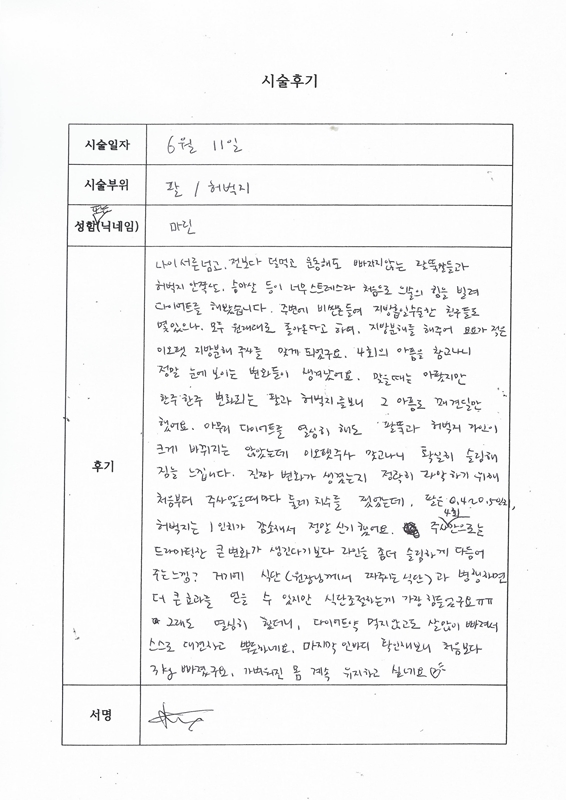 시술후기
시술일자 6월 11일
시술부위 팔 / 허벅지
성함(닉네임) 또는 마린
후기
나이 서른넘고, 전보다 덜먹고 운동해도 빠지지않는 팔뚝살들과
허벅지 안쪽살, 승마살 등이 너무 스트레스라 처음으로 의술의 힘을 빌려
다이어트를 해봤습니다. 주변에 비싼돈들여 지방흡입수술한 친구들도
몇있으나, 모두 원래대로 돌아온다고 하여, 지방분해를 해주어 요요가 적은
이오랫 지방분해 주사를 맞게 되었구요. 4회의 아픔을 참고나니
정말 눈에 보이는 변화들이 생겨났어요. 맞을때는 아팠지만
한주 한주 변화되는 팔과 허벅지를보니 그 아픔도 꽤 견딜만
했어요. 아무리 다이어트를 열심히 해도 팔뚝과 허벅지 라인이
크게 바뀌지는 않았는데 이오랫주사 맞고나니 확실히 슬림해
짐을 느낍니다. 진짜 변화가 생겼는지 정확히 파악하기 위해
처음부터 주사맞을때마다 둘레 치수를 쟀었는데, 팔은 0.4~0.5인치,
허벅지는 1인치가 감소해서 정말 신기했어요. 주사 4회만으로는
드라마틱한 큰변화가 생긴다기보다 라인을 좀더 슬림하게 다듬어
주는느낌? 거기에 식단(원장님께서 짜주는 식단)과 병행하면
더 큰효과를 얻을 수 있지만 식단조절하는게 가장 힘들었구요ㅠㅠ
그래도 열심히 했더니, 다이어트약 먹지않고도 살많이 빠져서
스스로 대견하고 뿌듯하네요. 마지막 인바디 확인해보니 처음보다
빠졌구요, 가벼워진 몸 계속 유지하고 싶네요
서명